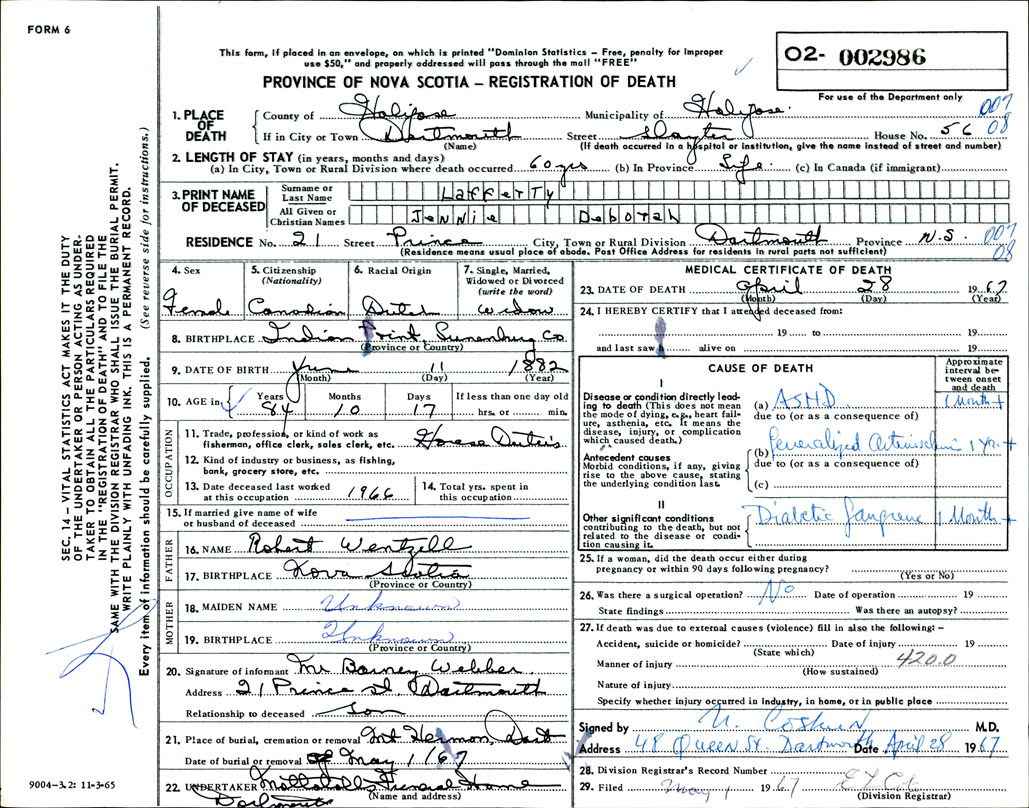 FORM 6
This form, if placed in an envelope, on which is printed "Dominion Statistics – Free, penalty for improper
use $50," and properly addressed will pass through the mail "FREE"
O2- 002986
PROVINCE OF NOVA SCOTIA – REGISTRATION OF DEATH
For use of the Department only
1. PLACE OF DEATH
County of Halifax Municipality of Halifax 007
If in City or Town Dartmouth Street Slayter House No. 56 08
(Name) (If death occurred in a hospital or institution, give the name instead of street and number)
2. LENGTH OF STAY (in years, months and days)
(a) In City, Town or Rural Division where death occurred 60 yrs (b) In Province Life (c) In Canada (if immigrant)
3. PRINT NAME OF DECEASED
Surname or Last Name LaFFerTy
All Given or Christian Names Jennie Deborah
RESIDENCE No. 21 Street Prince City, Town or Rural Division Dartmouth Province N.S. 007
(Residence means usual place of abode. Post Office Address for residents in rural parts not sufficient) 08
4. Sex
Female
5. Citizenship
(Nationality)
Canadian
6. Racial Origin
Dutch
7. Single, Married,
Widowed or Divorced
(write the word)
widow
8. BIRTHPLACE Indian Point, Lunenburg Co
(Province or Country)
9. DATE OF BIRTH June 11 1882
(Month) (Day) (Year)
10. AGE in Years Months Days If less than one day old
84 10 17 hrs. or min.
OCCUPATION
11. Trade, profession, or kind of work as
fisherman, office clerk, sales clerk, etc. House Duties
12. Kind of industry or business, as fishing,
bank, grocery store, etc.
13. Date deceased last worked
at this occupation 1966
14. Total yrs. spent in
this occupation
15. If married give name of wife
or husband of deceased
FATHER
16. NAME Robert Wentzell
17. BIRTHPLACE Nova Scotia
(Province or Country)
MOTHER
18. MAIDEN NAME Unknown
19. BIRTHPLACE Unknown
(Province or Country)
20. Signature of informant Mr Barney Webber
Address 21 Prince St. Dartmouth
Relationship to deceased Son
21. Place of burial, cremation or removal Mt Hermon, Dart
Date of burial or removal May 1/67
22. UNDERTAKER Funeral Home
(Name and address)
Dartmouth
MEDICAL CERTIFICATE OF DEATH
23. DATE OF DEATH April 28 1967
(Month) (Day) (Year)
24. I HEREBY CERTIFY that I attended deceased from:
19 to 19
and last saw h alive on 19
CAUSE OF DEATH
Approximate
interval be-
tween onset
and death
I
Disease or condition directly lead-
ing to death (This does not mean
the mode of dying, e.g., heart fail-
ure, asthenia, etc. It means the
disease, injury, or complication
which caused death.)
(a) ASHD 1 Month +
due to (or as a consequence of)
Antecedent causes
Morbid conditions, if any, giving
rise to the above cause, stating
the underlying condition last.
(b) Generalized 1 yr. +
due to (or as a consequence of)
(c)
II
Other significant conditions
contributing to the death, but not
related to the disease or condi-
tion causing it.
Diabetic Gangrene 1 Month +
25. If a woman, did the death occur either during
pregnancy or within 90 days following pregnancy?
(Yes or No)
26. Was there a surgical operation? No Date of operation 19
State findings Was there an autopsy?
27. If death was due to external causes (violence) fill in also the following: –
Accident, suicide or homicide? Date of injury 19
(State which)
Manner of injury 4200
(How sustained)
Nature of injury
Specify whether injury occurred in industry, in home, or in public place
Signed by M.D.
Address 48 Queen St. Dartmouth Date April 28 1967
28. Division Registrar's Record Number
29. Filed May 1 1967
(Division Registrar)
SEC. 14 – VITAL STATISTICS ACT MAKES IT THE DUTY
OF THE UNDERTAKER OR PERSON ACTING AS UNDER-
TAKER TO OBTAIN ALL THE PARTICULARS REQUIRED
IN THE "REGISTRATION OF DEATH" AND TO FILE THE
SAME WITH THE DIVISION REGISTRAR WHO SHALL ISSUE THE BURIAL PERMIT.
WRITE PLAINLY WITH UNFADING INK. THIS IS A PERMANENT RECORD.
Every item of information should be carefully supplied. (See reverse side for instructions.)
9004–3.2: 11-3-65